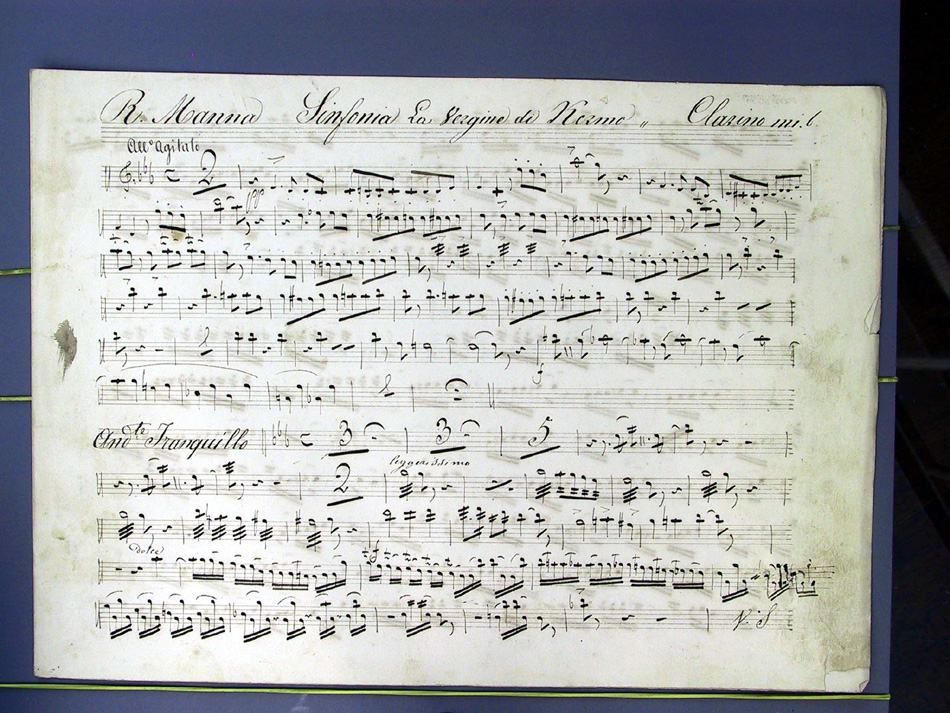 R. Manna Sinfonia La Vergine de Kermo „ Clarino mi.b
All° Agitato
2
ppp
2
f
2
And.te Tranquillo 3 3 5
2 leggerissimo
dolce
V. S